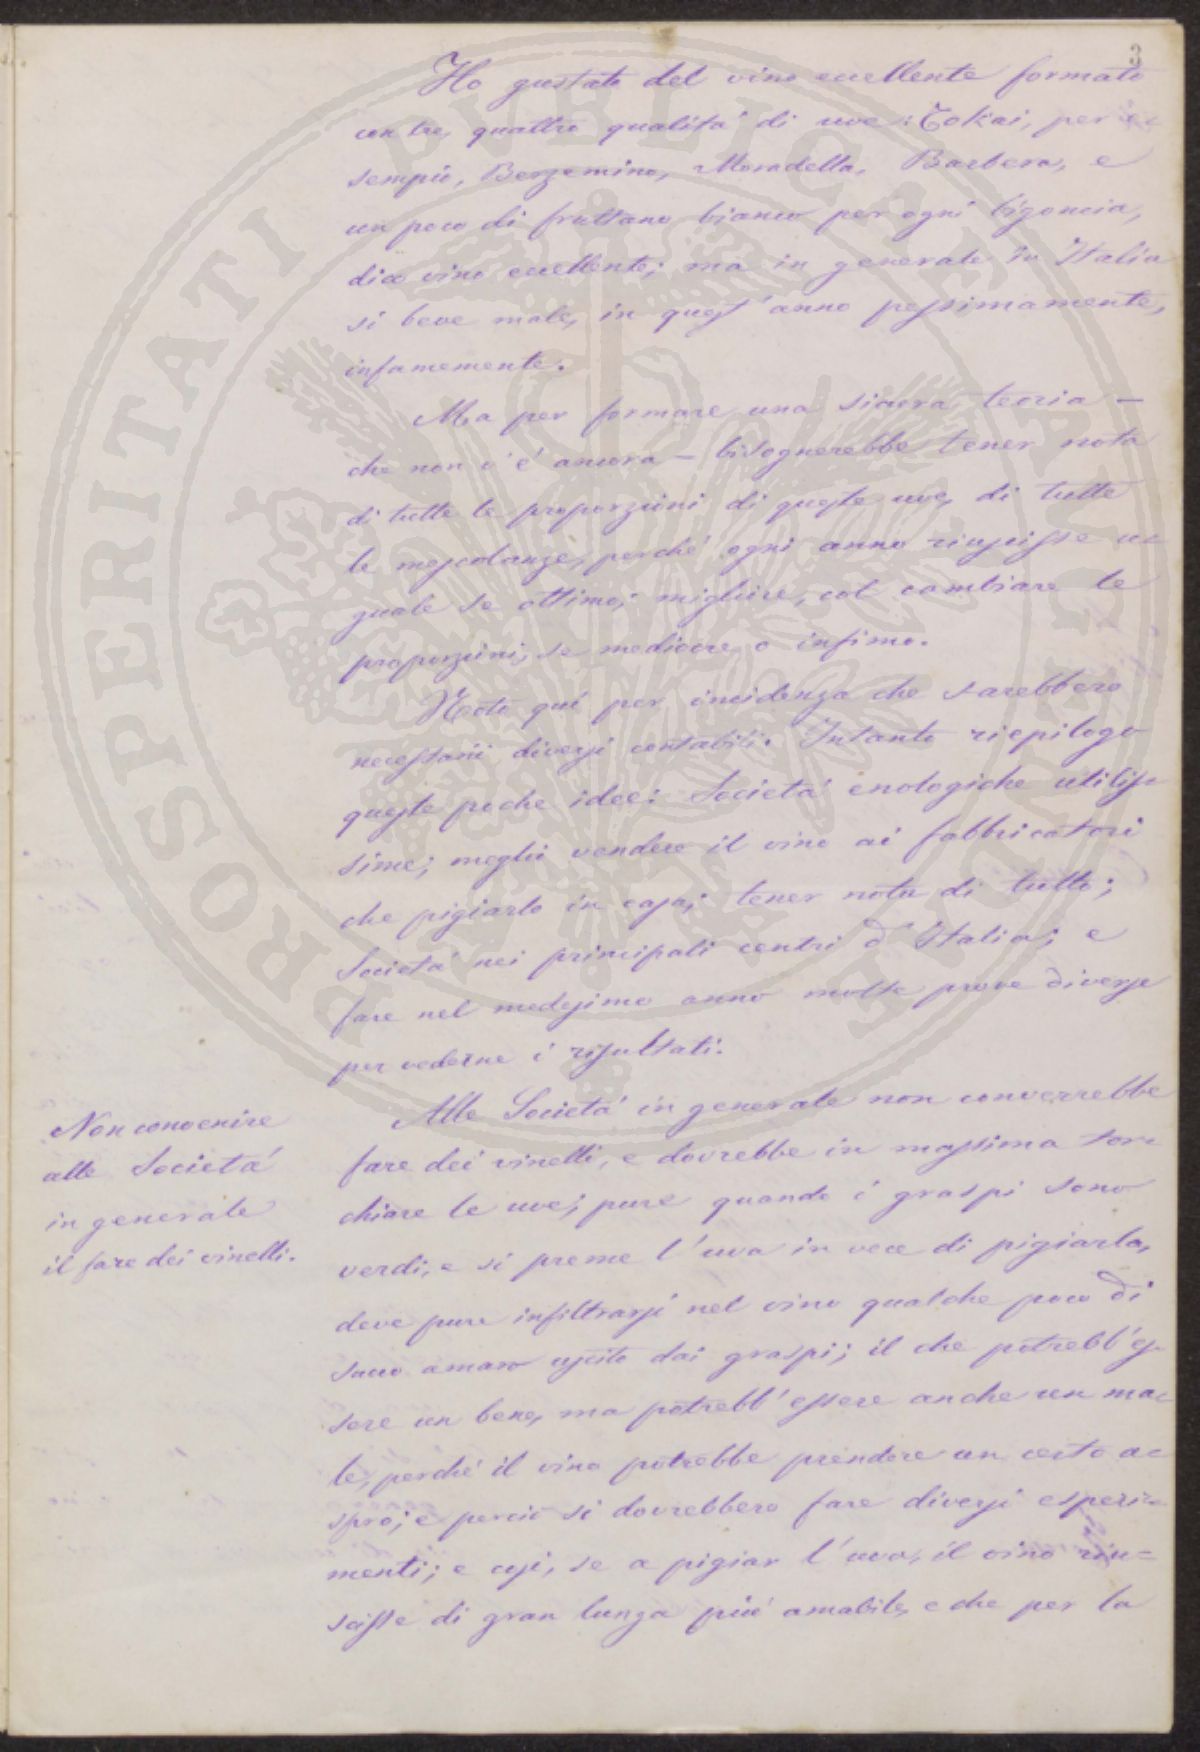 3
Ho gustato del vino eccellente formato
con tre, quattro qualità di uve: Tokai, per e=
sempio, Berzemino, Moradella, Barbera, e
un poco di fruttano bianco per ogni bigoncia,
dico vino eccellente; ma in generale in Italia
si beve male, in quest'anno pessimamente,
infamemente.
Ma per formare una sicura teoria —
che non v'è ancora — bisognerebbe tener nota
di tutte le proporzioni di queste uve, di tutte
le mescolanze, perché ogni anno riuscisse u=
guale se ottimo; migliore, col cambiare le
proporzioni, se mediocre o infimo.
Noto quì per incidenza che sarebbero
necessarii diversi contabili. Intanto riepilogo
queste poche idee: Società enologiche utilis=
sime; meglio vendere il vino ai fabbricatori
che pigiarlo in casa; tener nota di tutto;
Società nei principali centri d'Italia; e
fare nel medesimo anno molte prove diverse
per vederne i risultati.
Non convenire
alle Società
in generale
il fare dei vinelli.
Alle Società in generale non converrebbe
fare dei vinelli, e dovrebbe in massima tor=
chiare le uve; pure quando i graspi sono
verdi, e si preme l'uva in vece di pigiarla,
deve pure infiltrarsi nel vino qualche poco di
succo amaro uscito dai graspi; il che potrebb'es=
sere un bene, ma potrebb'essere anche un ma=
le, perché il vino potrebbe prendere un certo a=
spro; e perciò si dovrebbero fare diversi esperi=
menti; e così, se a pigiar l'uva, il vino riu=
scisse di gran lunga più amabile, e che per la
PROSPERITATI PUBLICAE AUGENDAE